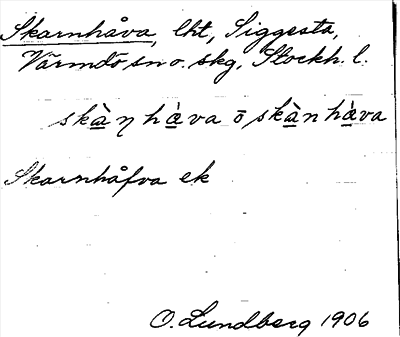 Skarnhåva, lht, Siggesta,
Värmdö sn o. skg, Stockh. l.
skàn hàva o skàn hàva
Skarnhåfva ek
O. Lundberg 1906